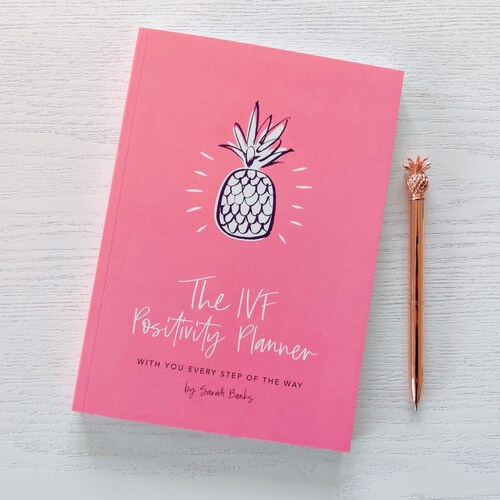 The IVF
Positivity Planner
WITH YOU EVERY STEP OF THE WAY
by Sarah Banks